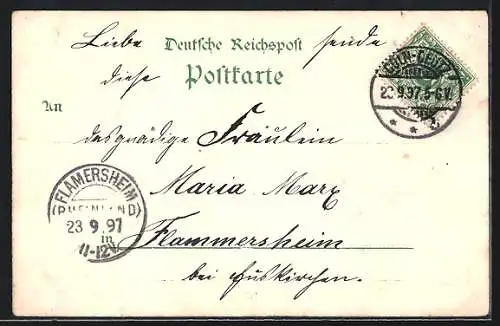 Liebe Deutsche Reichspost sende
diese Postkarte
An
das gnädige Fräulein
Maria Marx
Flammersheim
bei Euskirchen.
CÖLN-DEUTZ
23 9.97. 5-6 V.
* *
FLAMERSHEIM
(RHEINLAND)
23 9.97
11-12V.